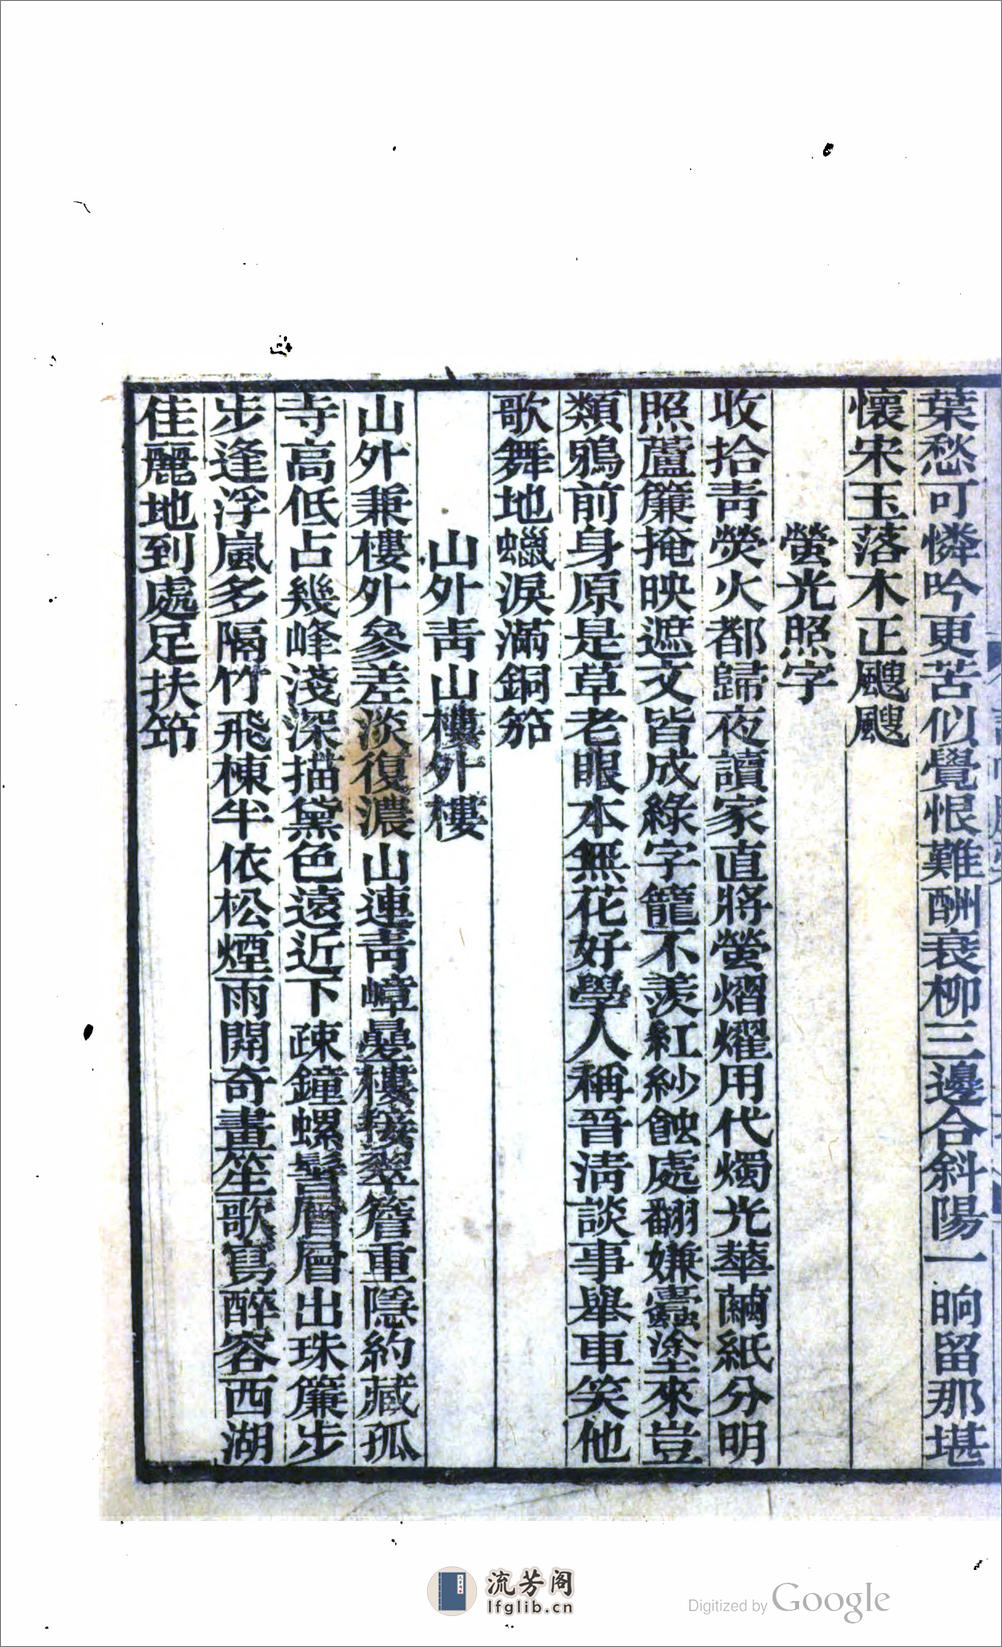 葉愁可憐吟更苦似覺恨難酬衰柳三邊合斜陽一晌留那堪
懷宋玉落木正颼颼
螢光照字
收拾青熒火都歸夜讀家直將螢熠燿用代燭光華繭紙分明
照蘆簾掩映遮文皆成綠字籠不羨紅紗蝕處翻嫌蠹塗來豈
類鴉前身原是草老眼本無花好學人稱晉淸談事舉車笑他
歌舞地蠟淚滿銅笳
山外靑山樓外樓
山外兼樓外參差淡復濃山連靑嶂疊樓接翠簷重隱約藏孤
寺高低占幾峰淺深描黛色遠近下疎鐘螺髻層層出珠簾步
步逢浮嵐多隔竹飛棟半依松煙雨開奇畫笙歌寫醉容西湖
佳麗地到處足扶筇
流芳阁
lfglib.cn
Digitized by Google